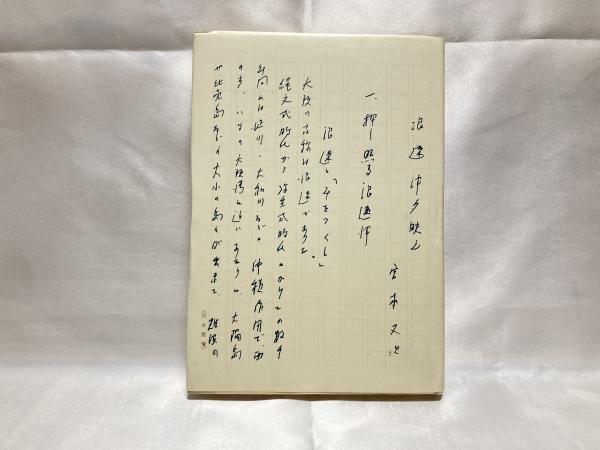 浪速津夕映え
宮本又次
一、押し照る浪速津
浪速と「みをつくし」
大阪の古称は浪速である。
縄文式時代から弥生式時代にかけての数千
年間には淀川・大和川などの沖積作用で、西
の方、いまの大阪湾の辺にあたりに、大隅島
や比売島など大小の島々が出来て、